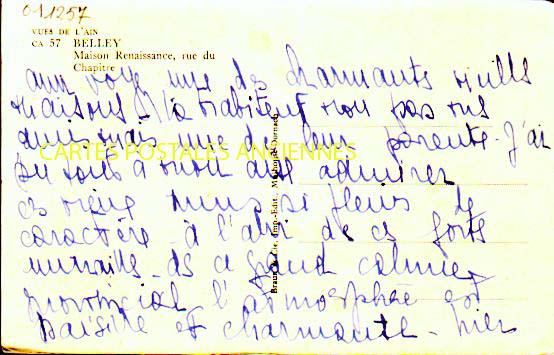 011257
VUES DE L'AIN
CA 57 BELLEY
Maison Renaissance, rue du
Chapitre
vous une des charmants vieilles
maisons habitent non pas nos
amis mais une de leur parente. J'ai
CARTES POSTALES ANCIENNES
pu admirer
ces vieux murs si pleins de
caractère à l'abri de ces fortes
murailles de ce grand calme
provincial l'atmosphère est
paisible et charmante - hier
Braun & Cie, Imp.-Edit., Mulhouse-Dornach